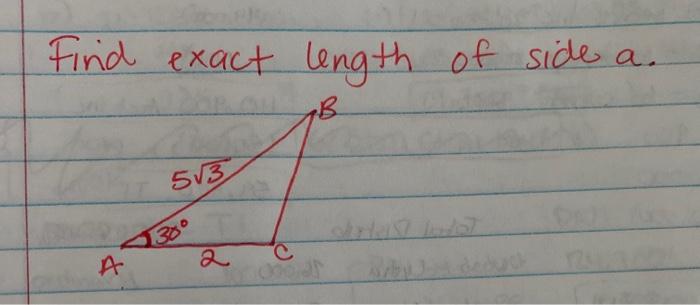 Find exact length of side a.
B
5√3
30°
A 2 C